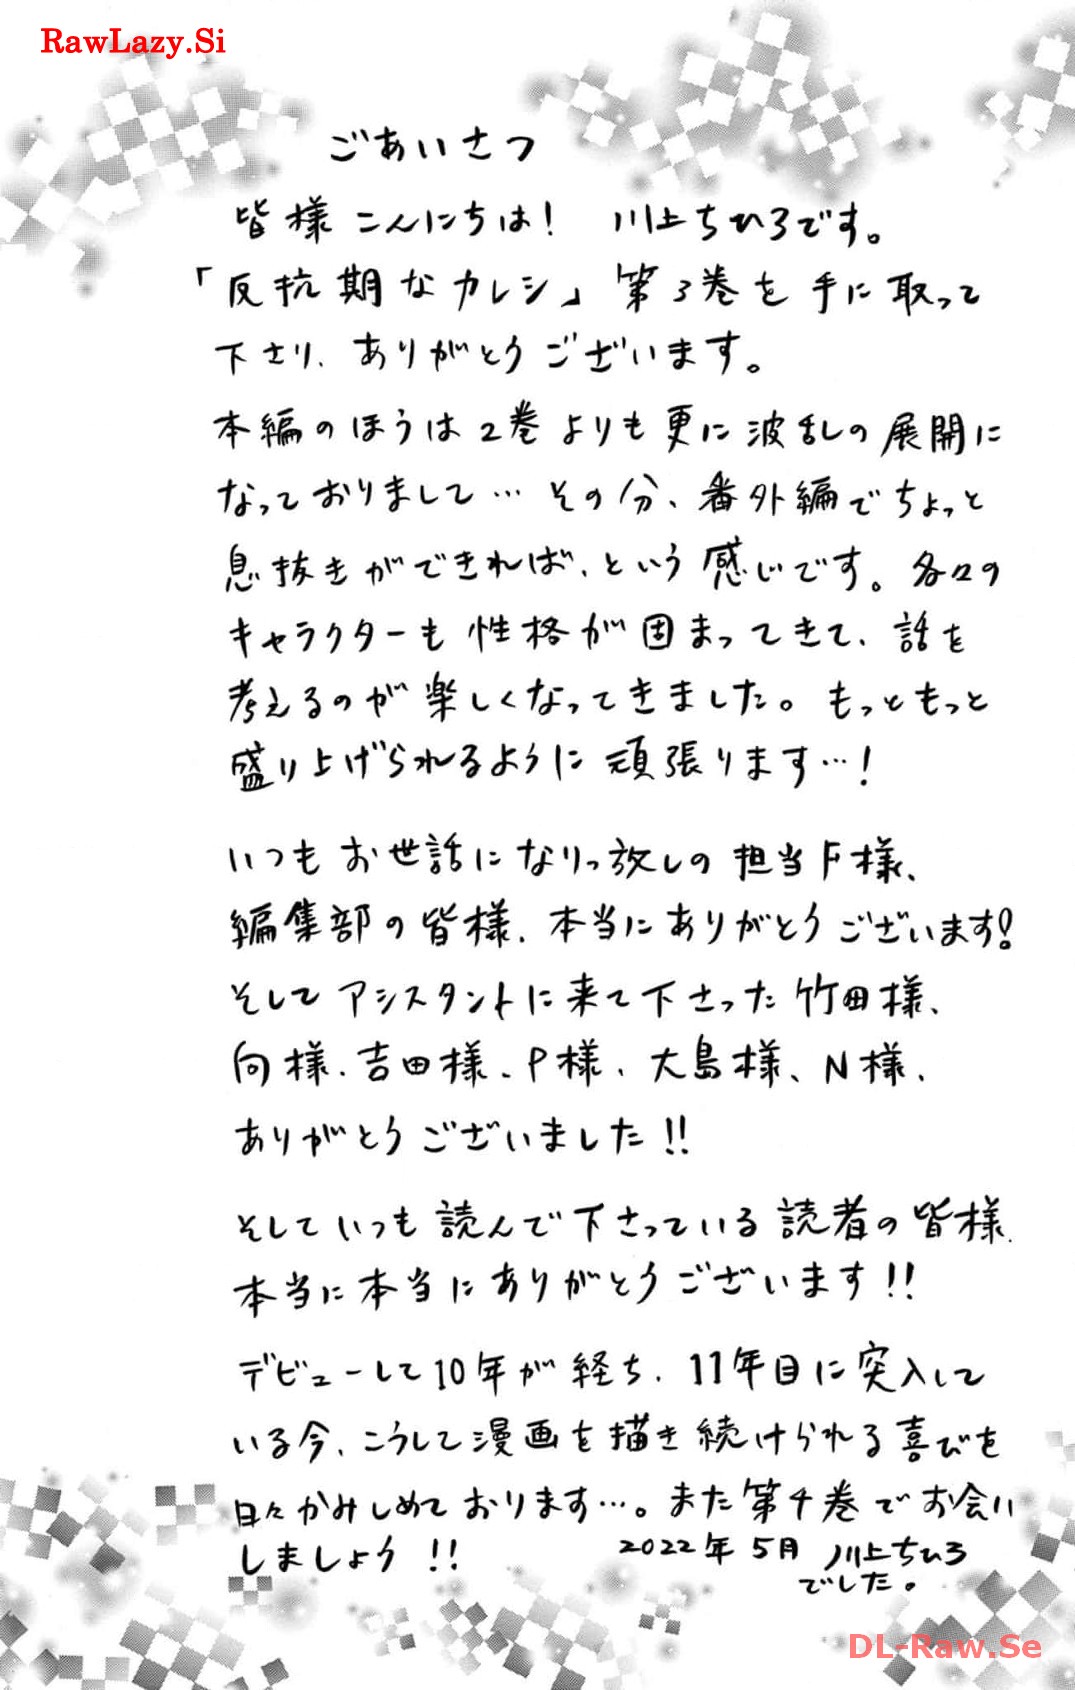 RawLazy.Si
ごあいさつ
皆様こんにちは! 川上ちひろです。
「反抗期なカレシ」第3巻を手に取って
下さり、ありがとうございます。
本編のほうは2巻よりも更に波乱の展開に
なっておりまして…その分、番外編でちょっと
息抜きができれば、という感じです。各々の
キャラクターも性格が固まってきて、話を
考えるのが楽しくなってきました。もっともっと
盛り上げられるように頑張ります…!
いつもお世話になりっ放しの担当F様、
編集部の皆様、本当にありがとうございます!
そしてアシスタントに来て下さった竹田様、
向様、吉田様、P様、大島様、N様、
ありがとうございました!!
そしていつも読んで下さっている読者の皆様、
本当に本当にありがとうございます!!
デビューして10年が経ち、11年目に突入して
いる今、こうして漫画を描き続けられる喜びを
日々かみしめております…。また第4巻でお会い
しましょう!!
2022年5月 川上ちひろ
でした。
DL-Raw.Se